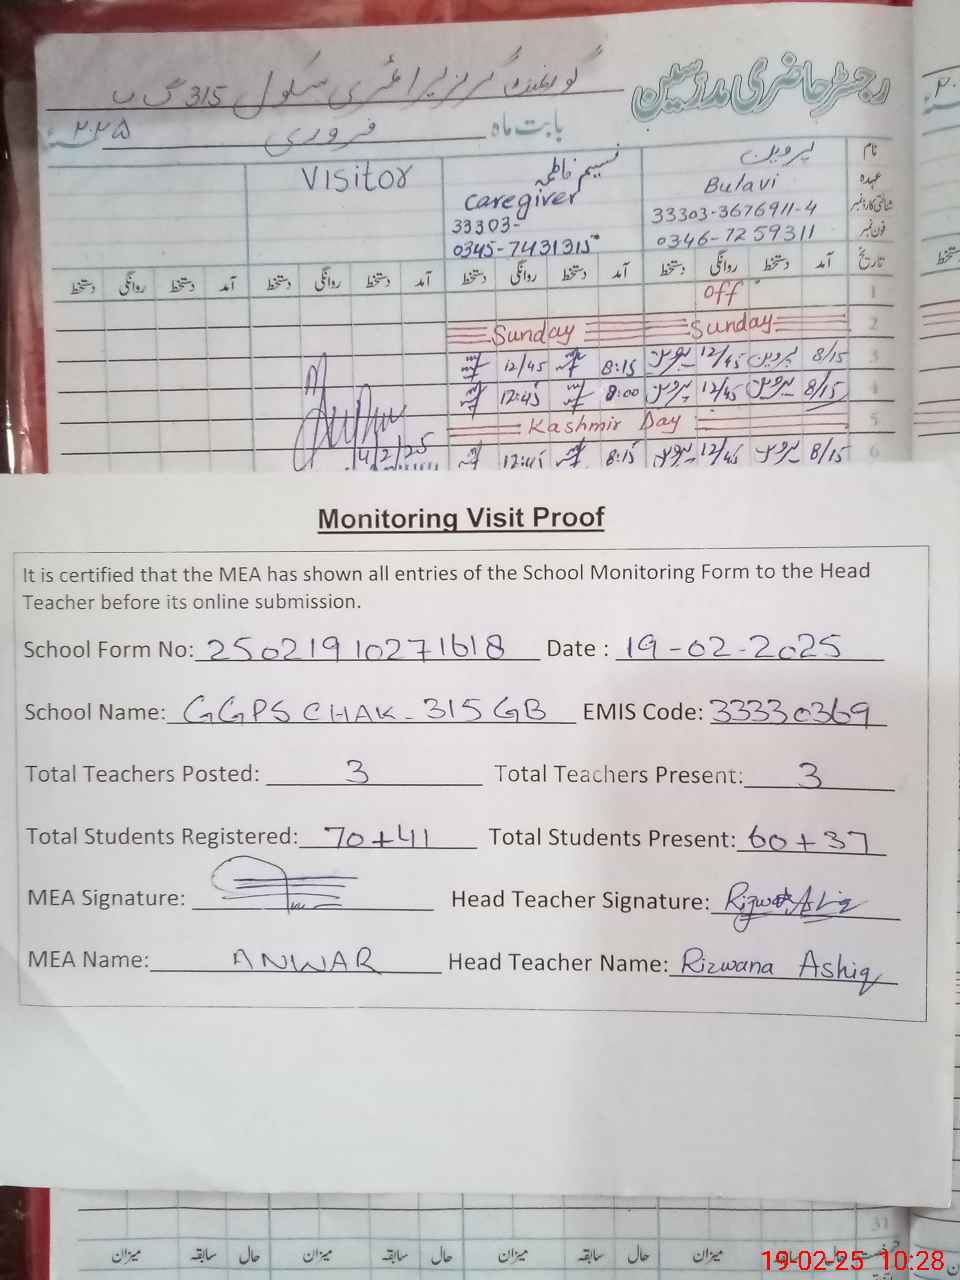 رجسٹر حاضری مدرسین
گورنمنٹ گرلز پرائمری سکول 315 گ ب
بابت ماہ فروری ۲۰۲۵
نام پروین نسیم فاطمہ Visitor
عہدہ Bulavi Caregiver
شناختی کارڈ نمبر 33303-3676911-4 33303-
فون نمبر 0346-7259311 0345-7431315
تاریخ آمد دستخط روانگی دستخط آمد دستخط روانگی دستخط آمد دستخط روانگی دستخط آمد دستخط روانگی دستخط
1 off
2 Sunday Sunday
3 8/15 پروین 12/45 پروین 8:15 12/45
4 8/15 پروین 12/45 پروین 8:00 12:45
5 Kashmir Day
6 8/15 پروین 12/45 پروین 8:15 12:45
4/2/25
Monitoring Visit Proof
It is certified that the MEA has shown all entries of the School Monitoring Form to the Head
Teacher before its online submission.
School Form No: 25021910271618 Date : 19-02-2025
School Name: GGPS CHAK-315 GB EMIS Code: 33330369
Total Teachers Posted: 3 Total Teachers Present: 3
Total Students Registered: 70+41 Total Students Present: 60+37
MEA Signature: Head Teacher Signature: Rizwana Ashiq
MEA Name: ANWAR Head Teacher Name: Rizwana Ashiq
31
حال سابقہ میزان حال سابقہ میزان حال سابقہ میزان حال سابقہ میزان
19-02-25 10:28